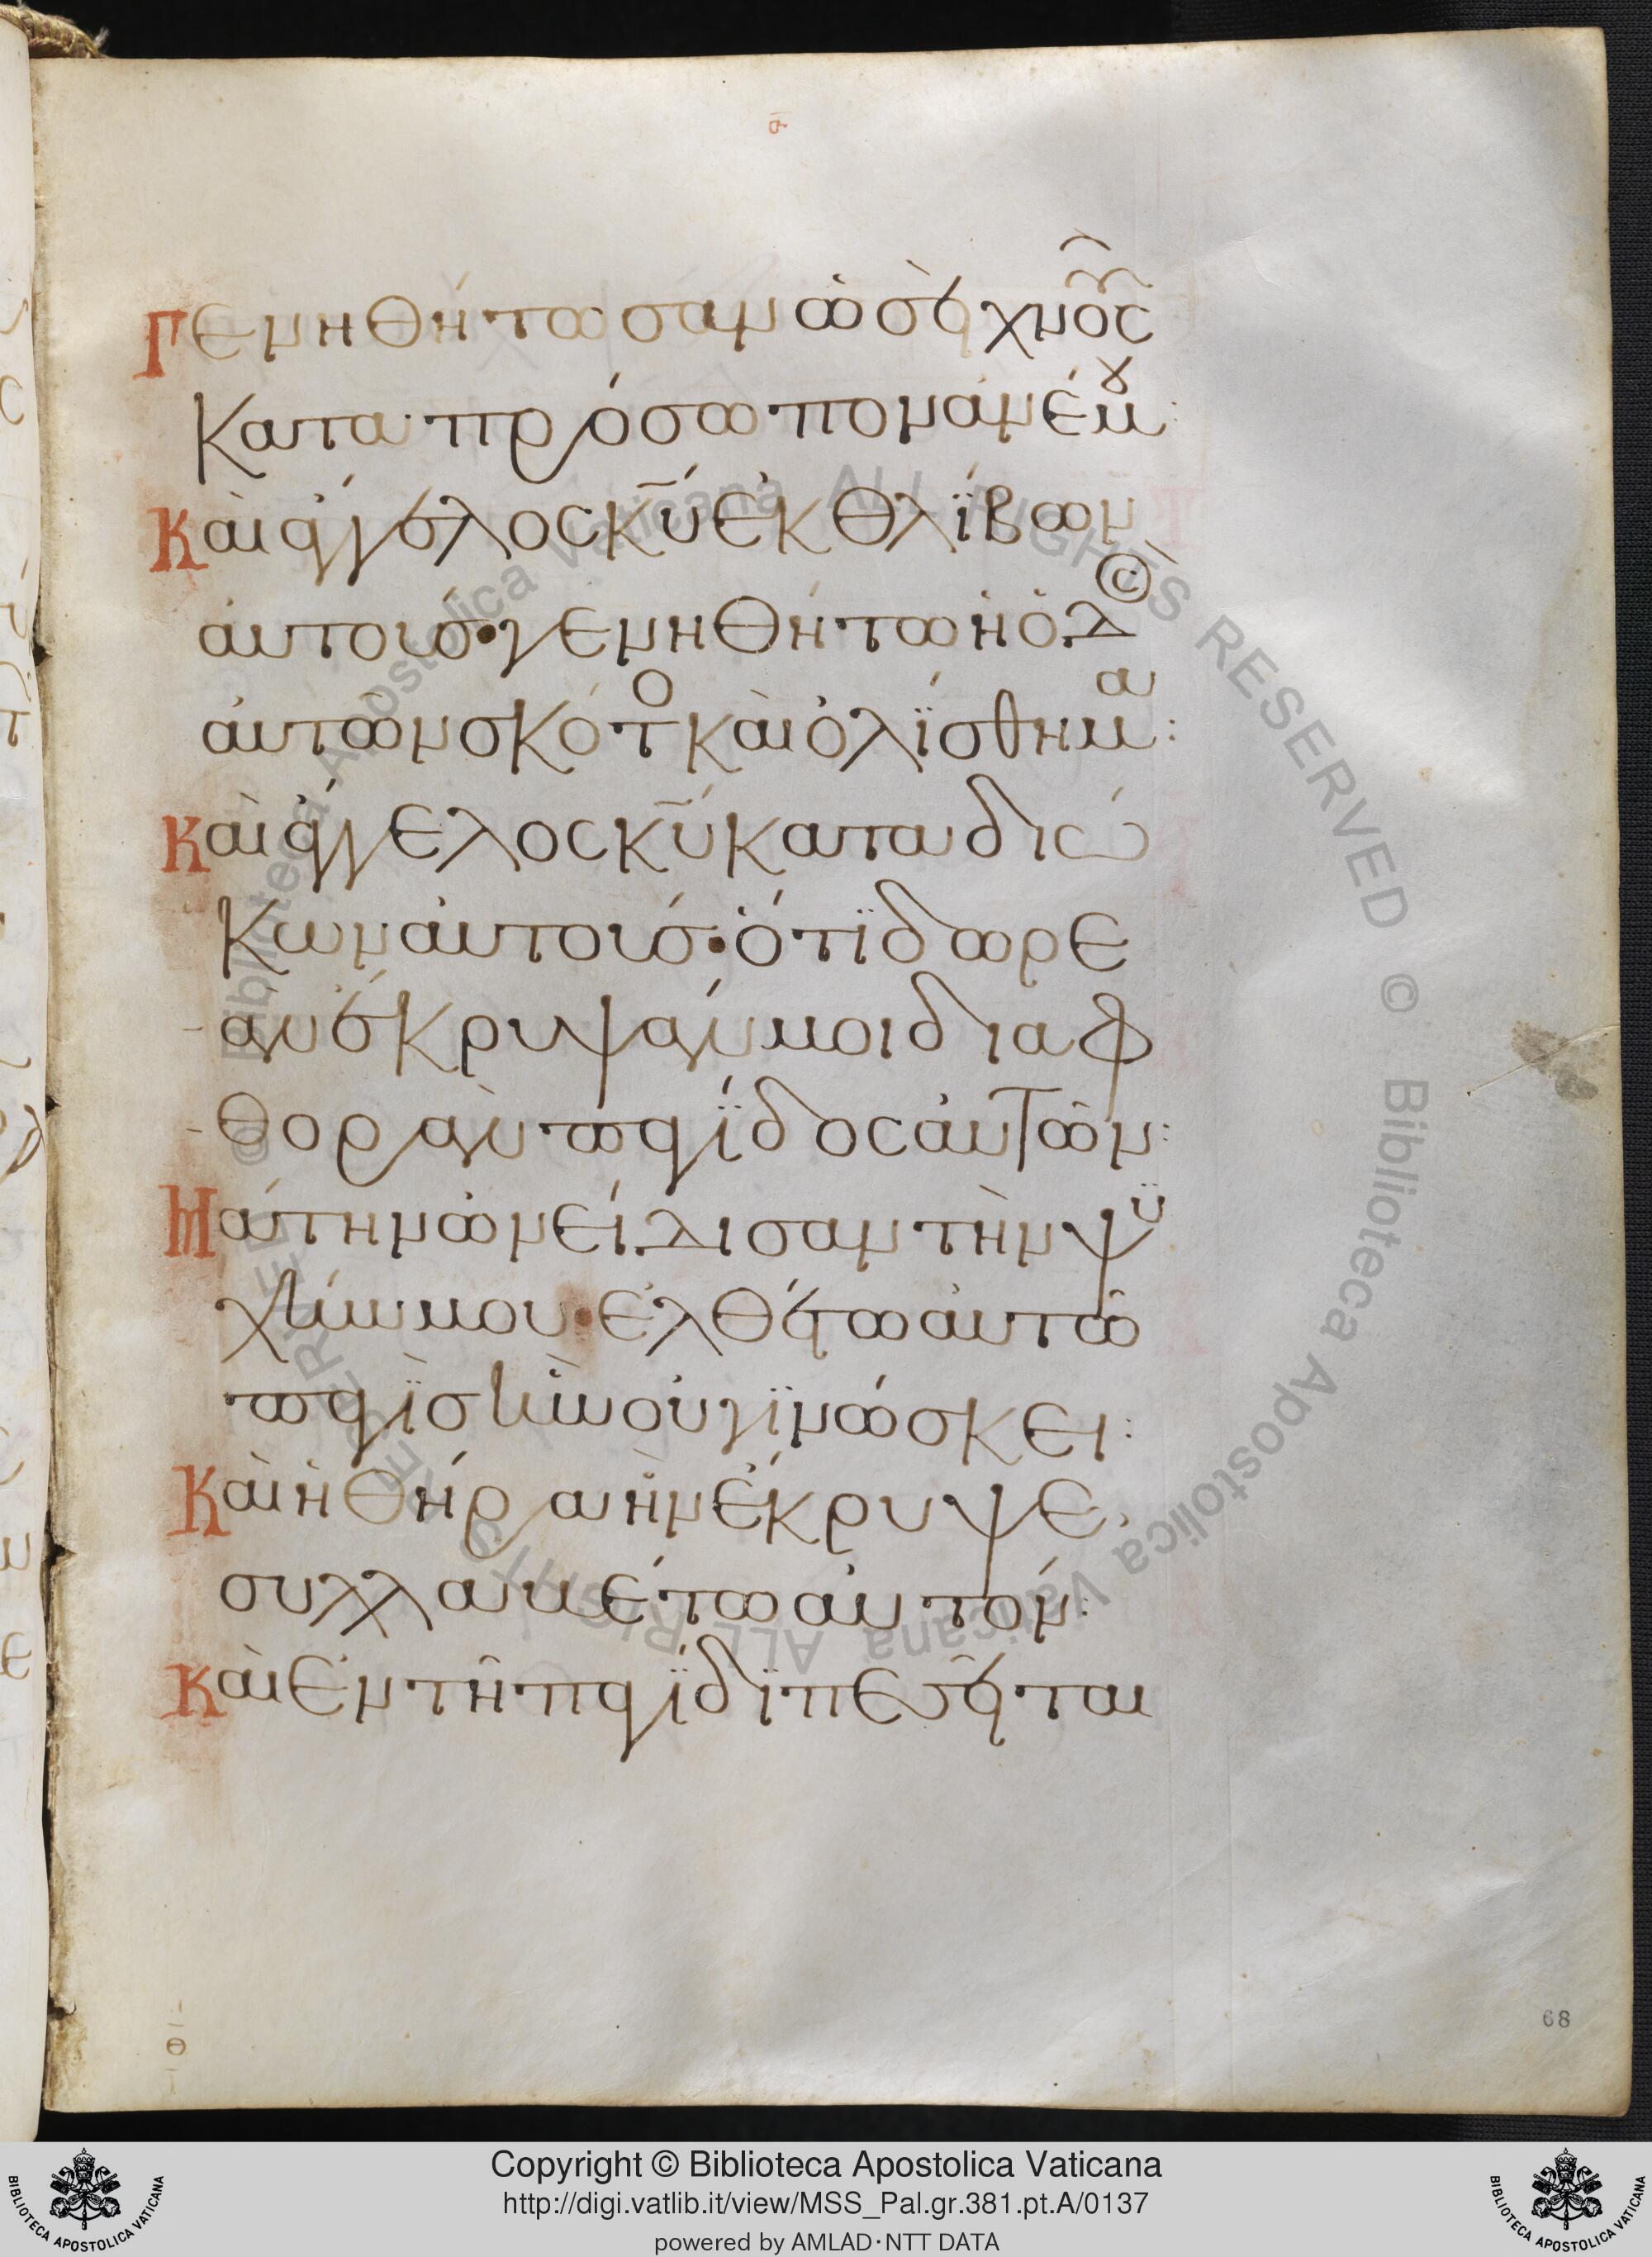 Γενηθήτωσαν ὡσεὶ χνοῦς
κατα πρόσωπον ἀνέμου:
Καὶ ἄγγελος κ̅υ̅ ἐκθλίβων
ἀυτούς· γενηθήτω ἡ ὁδὸς
ἀυτῶν σκότος καὶ ὀλίσθημα:
Καὶ ἄγγελος κ̅υ̅ καταδιώ
κων ἀυτούς· ὅτι δωρε
ὰν ἔκρυψάν μοι διαφ
θορὰν παγίδος ἀυτῶν:
Μάτην ὠνείδισαν τὴν ψυ
χήν μου· ἐλθέτω ἀυτῶ
παγὶς ἣν οὐ γινώσκει:
Καὶ ἡ θήρα ἣν ἔκρυψε,
συλλαβέτω ἀυτόν:
Καὶ ἐν τῆ παγίδι πεσεῖται
68
Copyright © Biblioteca Apostolica Vaticana
http://digi.vatlib.it/view/MSS_Pal.gr.381.pt.A/0137
powered by AMLAD·NTT DATA
BIBLIOTECA APOSTOLICA VATICANA
BIBLIOTECA APOSTOLICA VATICANA
© Biblioteca Apostolica Vaticana ALL RIGHTS RESERVED © Biblioteca Apostolica Vaticana ALL RIGHTS RESERVED